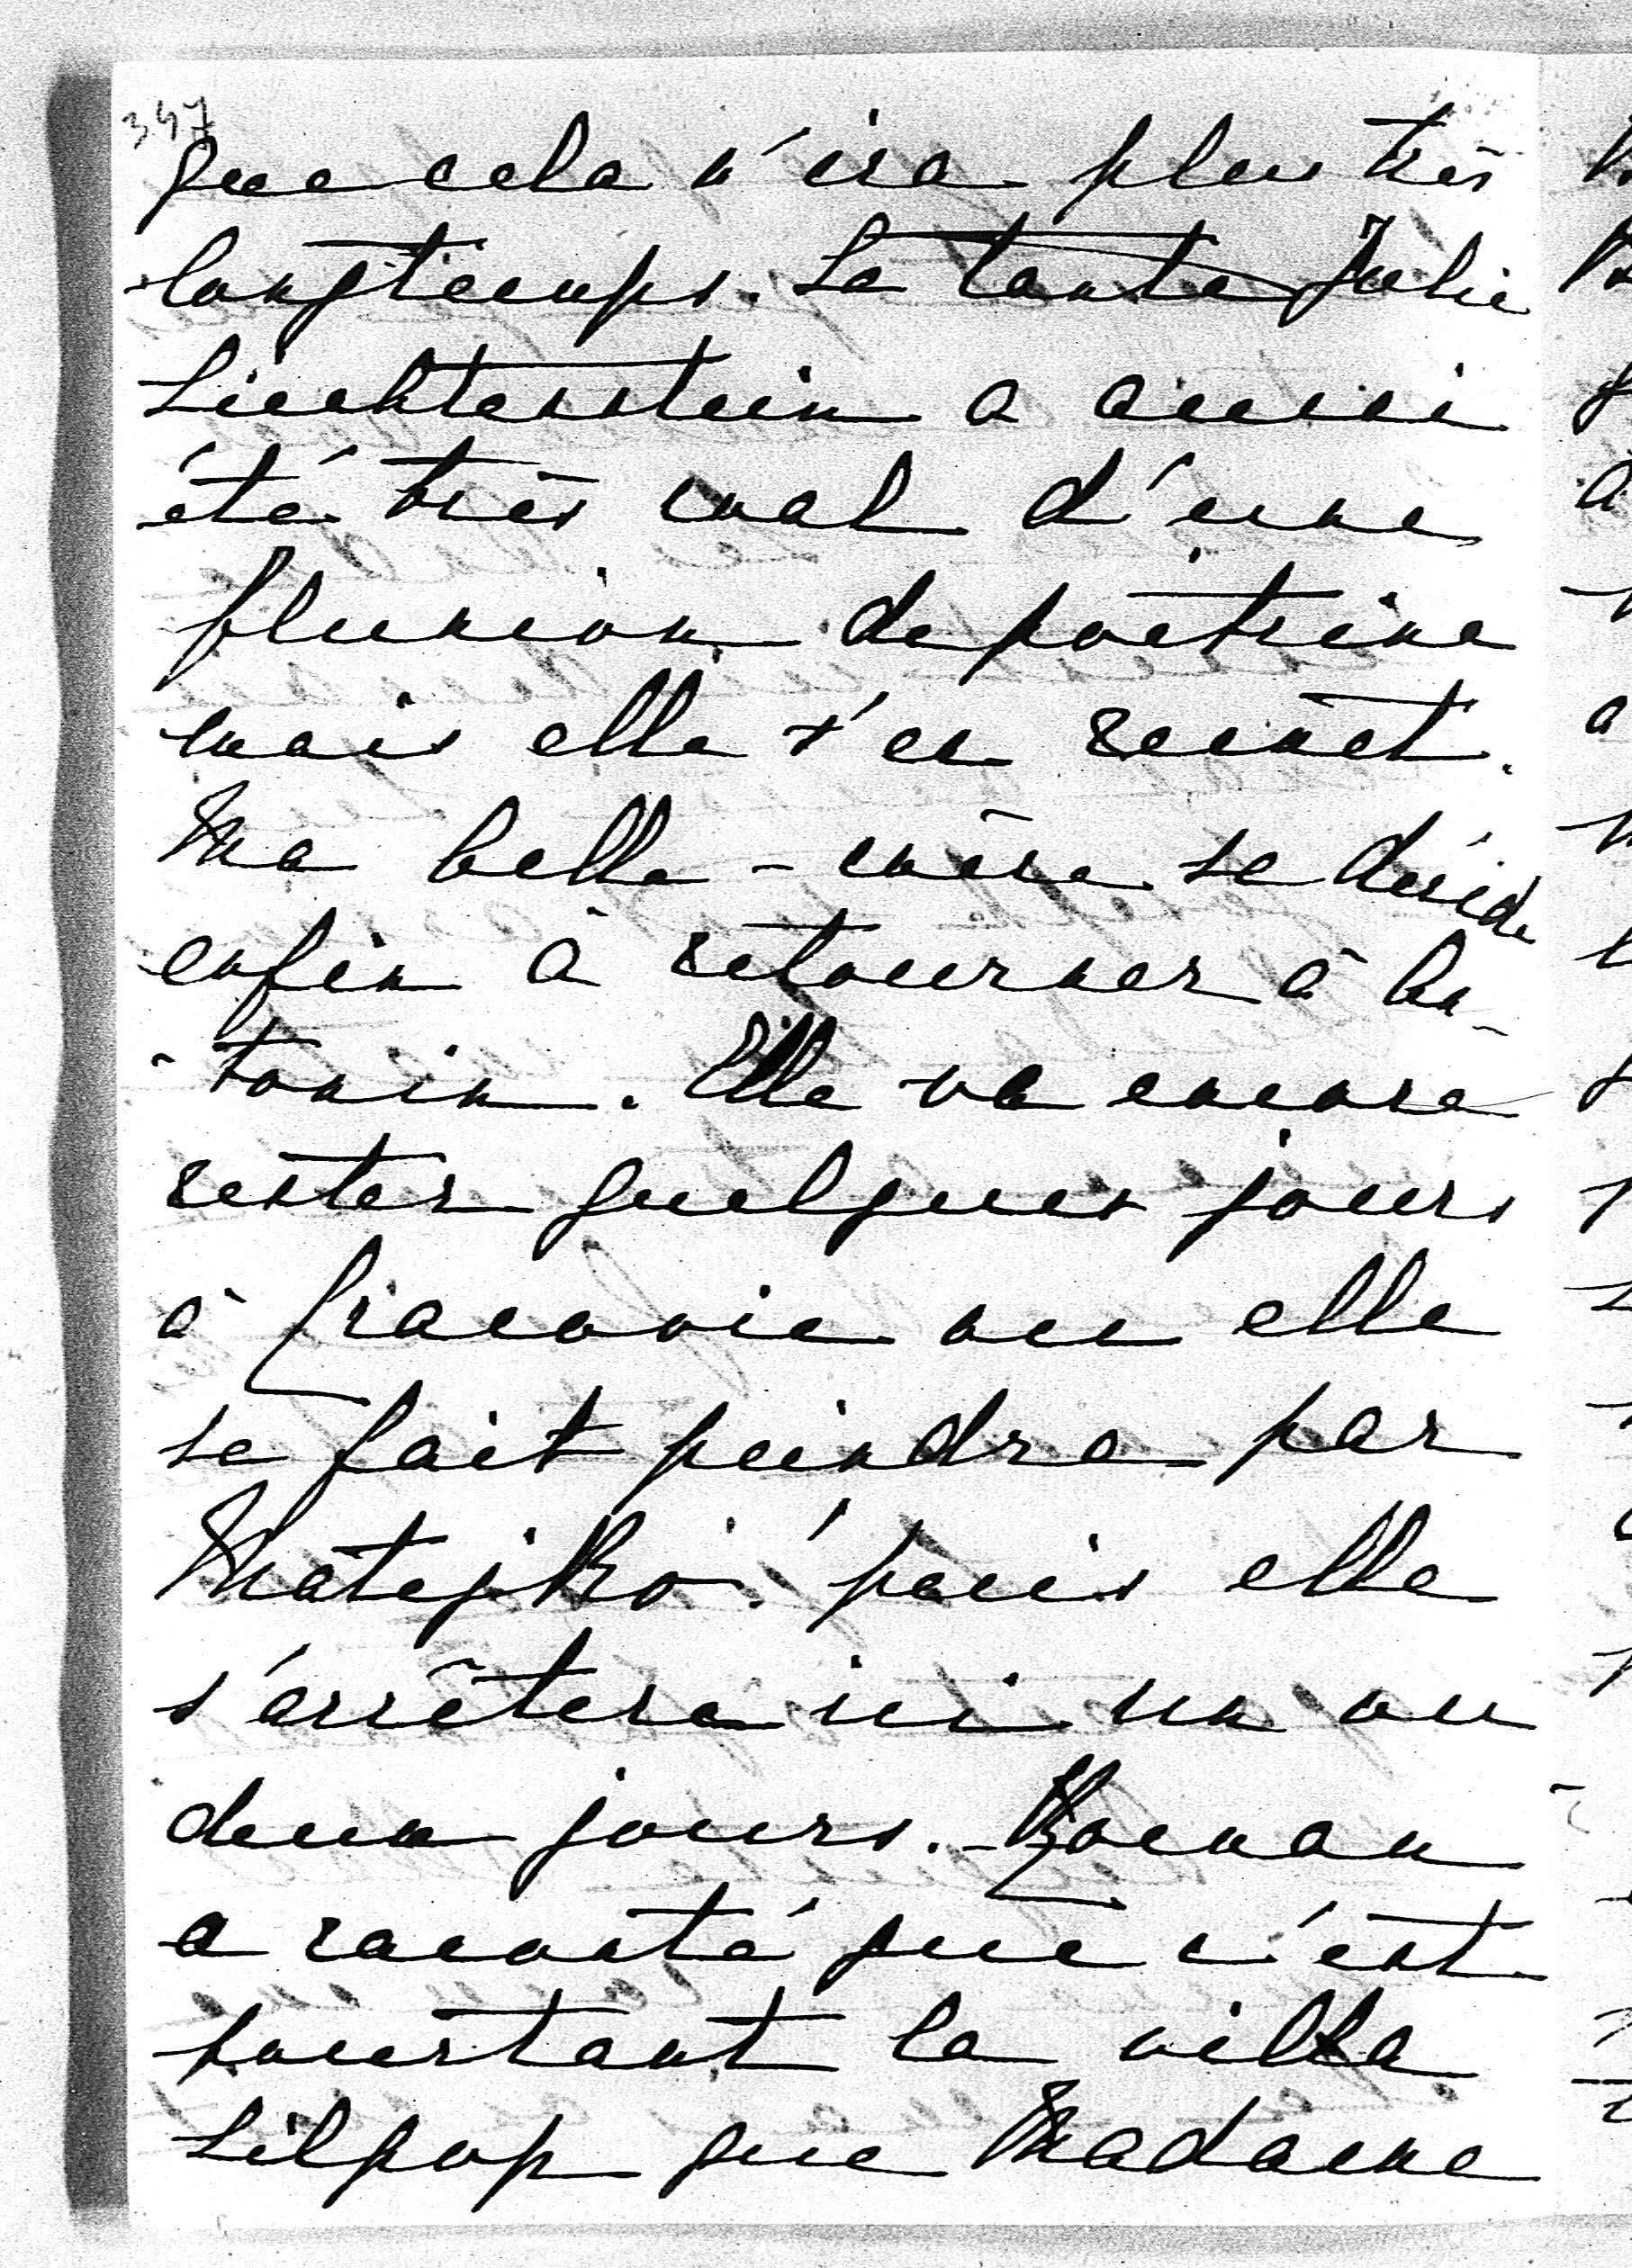 347
que cela n'ira plus très
longtemps. La tante Julie
Liechtenstein a aussi
été très mal d'une
fluxion de poitrine
mais elle s'en remet.
Ma belle-mère se décide
enfin à retourner à An-
tonin. Elle va encore
rester quelques jours
à Cracovie ou elle
se fait peindre par
Matejko. puis elle
s'arrêtera ici un ou
deux jours. - Kocnan
a raconté que c'est
pourtant la villa
Lilpop que Madame